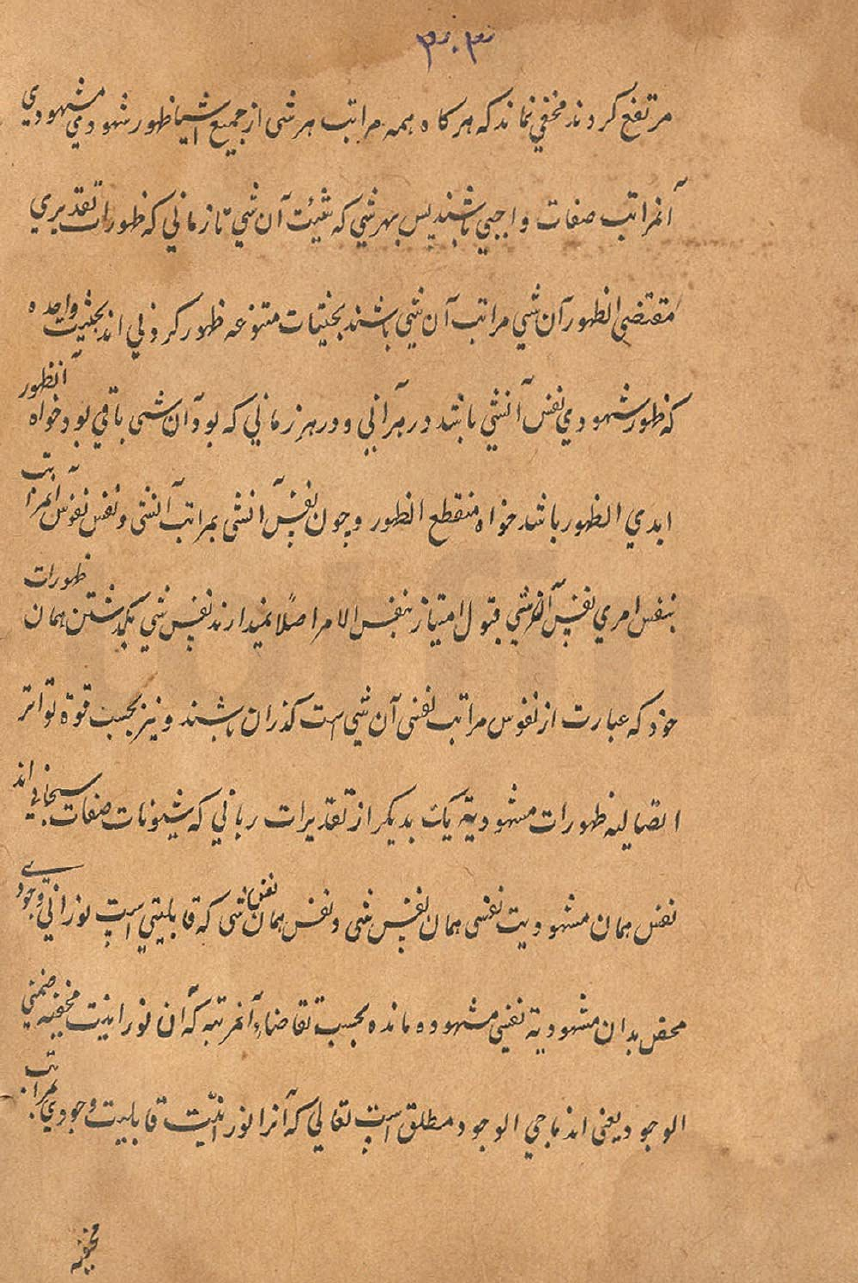 ۳۰۳
مرتفع کردند مخفی نماند که هر کاه همه مراتب هر شی از جمیع اشیا ظهور شهودی مشهودی
آنمراتب صفات واجبی باشند پس بهر شی که شیئت آن شی تا زمانی که ظهورات تقدیری
مقتضی الظهور آن شی مراتب آن شی باشند بحیثیات متنوعه ظهور کردنی اند بحیثیت واحده
که ظهور شهودی نفس آنشی باشد در هر آنی و در هر زمانی که بود آن شی باقی بود خواه آنظهور
ابدی الظهور باشد خواه منقطع الظهور و چون نفس آنشی بمراتب آنشی و نفس نفوس آنمراتب
بنفس امری نفس آنشی قبول امتیاز بنفس الامر اصلا نمیدارند نفس شی بکذشتن همان ظهورات
خود که عبارت از نفوس مراتب نفسی آن شی است کذران باشند و نیز بحسب قوة تواتر
اتصالیه ظهورات مشهودیة یک بدیکر از تقدیرات ربانی که شیونات صفات سبحانی اند
نفس همان مشهودیت نفسی همان نفس شی و نفس همان نفس شی که قابلیتی است نورانی وجودی
محض بدان مشهودیة نفسی مشهوده مانده بحسب تقاضاء آنمرتبه که آن نورانیت مخفیه ضمنی
الوجود یعنی اندماجی الوجود مطلق است تعالی که آنرا نورانیت قابلیت وجودی بمراتب
مخفیه